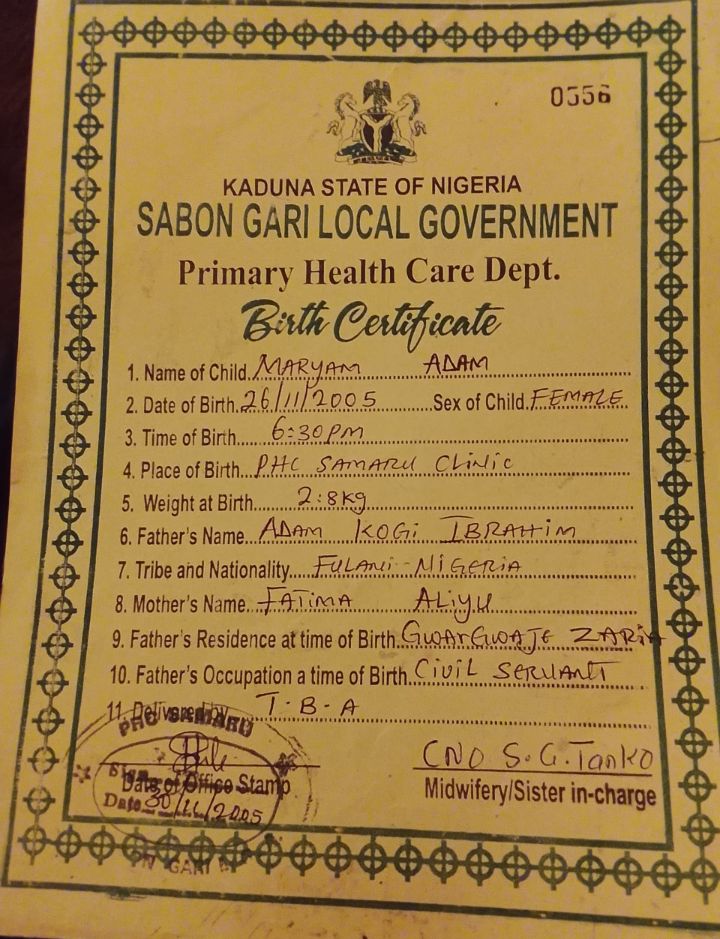 0556
KADUNA STATE OF NIGERIA
SABON GARI LOCAL GOVERNMENT
Primary Health Care Dept.
Birth Certificate
1. Name of Child MARYAM ADAM
2. Date of Birth 26/11/2005 Sex of Child FEMALE
3. Time of Birth 6:30PM
4. Place of Birth PHC SAMARU CLINIC
5. Weight at Birth 2:8kg
6. Father's Name ADAM KOGI IBRAHIM
7. Tribe and Nationality FULANI - NIGERIA
8. Mother's Name FATIMA ALIYU
9. Father's Residence at time of Birth GWARGWAJE ZARIA
10. Father's Occupation a time of Birth CIVIL SERVANT
11. Delivered by T-B-A
PHC SAMARU
Sign
Date of Office Stamp
Date 30/11/2005
CNO S.G. Tanko
Midwifery/Sister in-charge
GARI